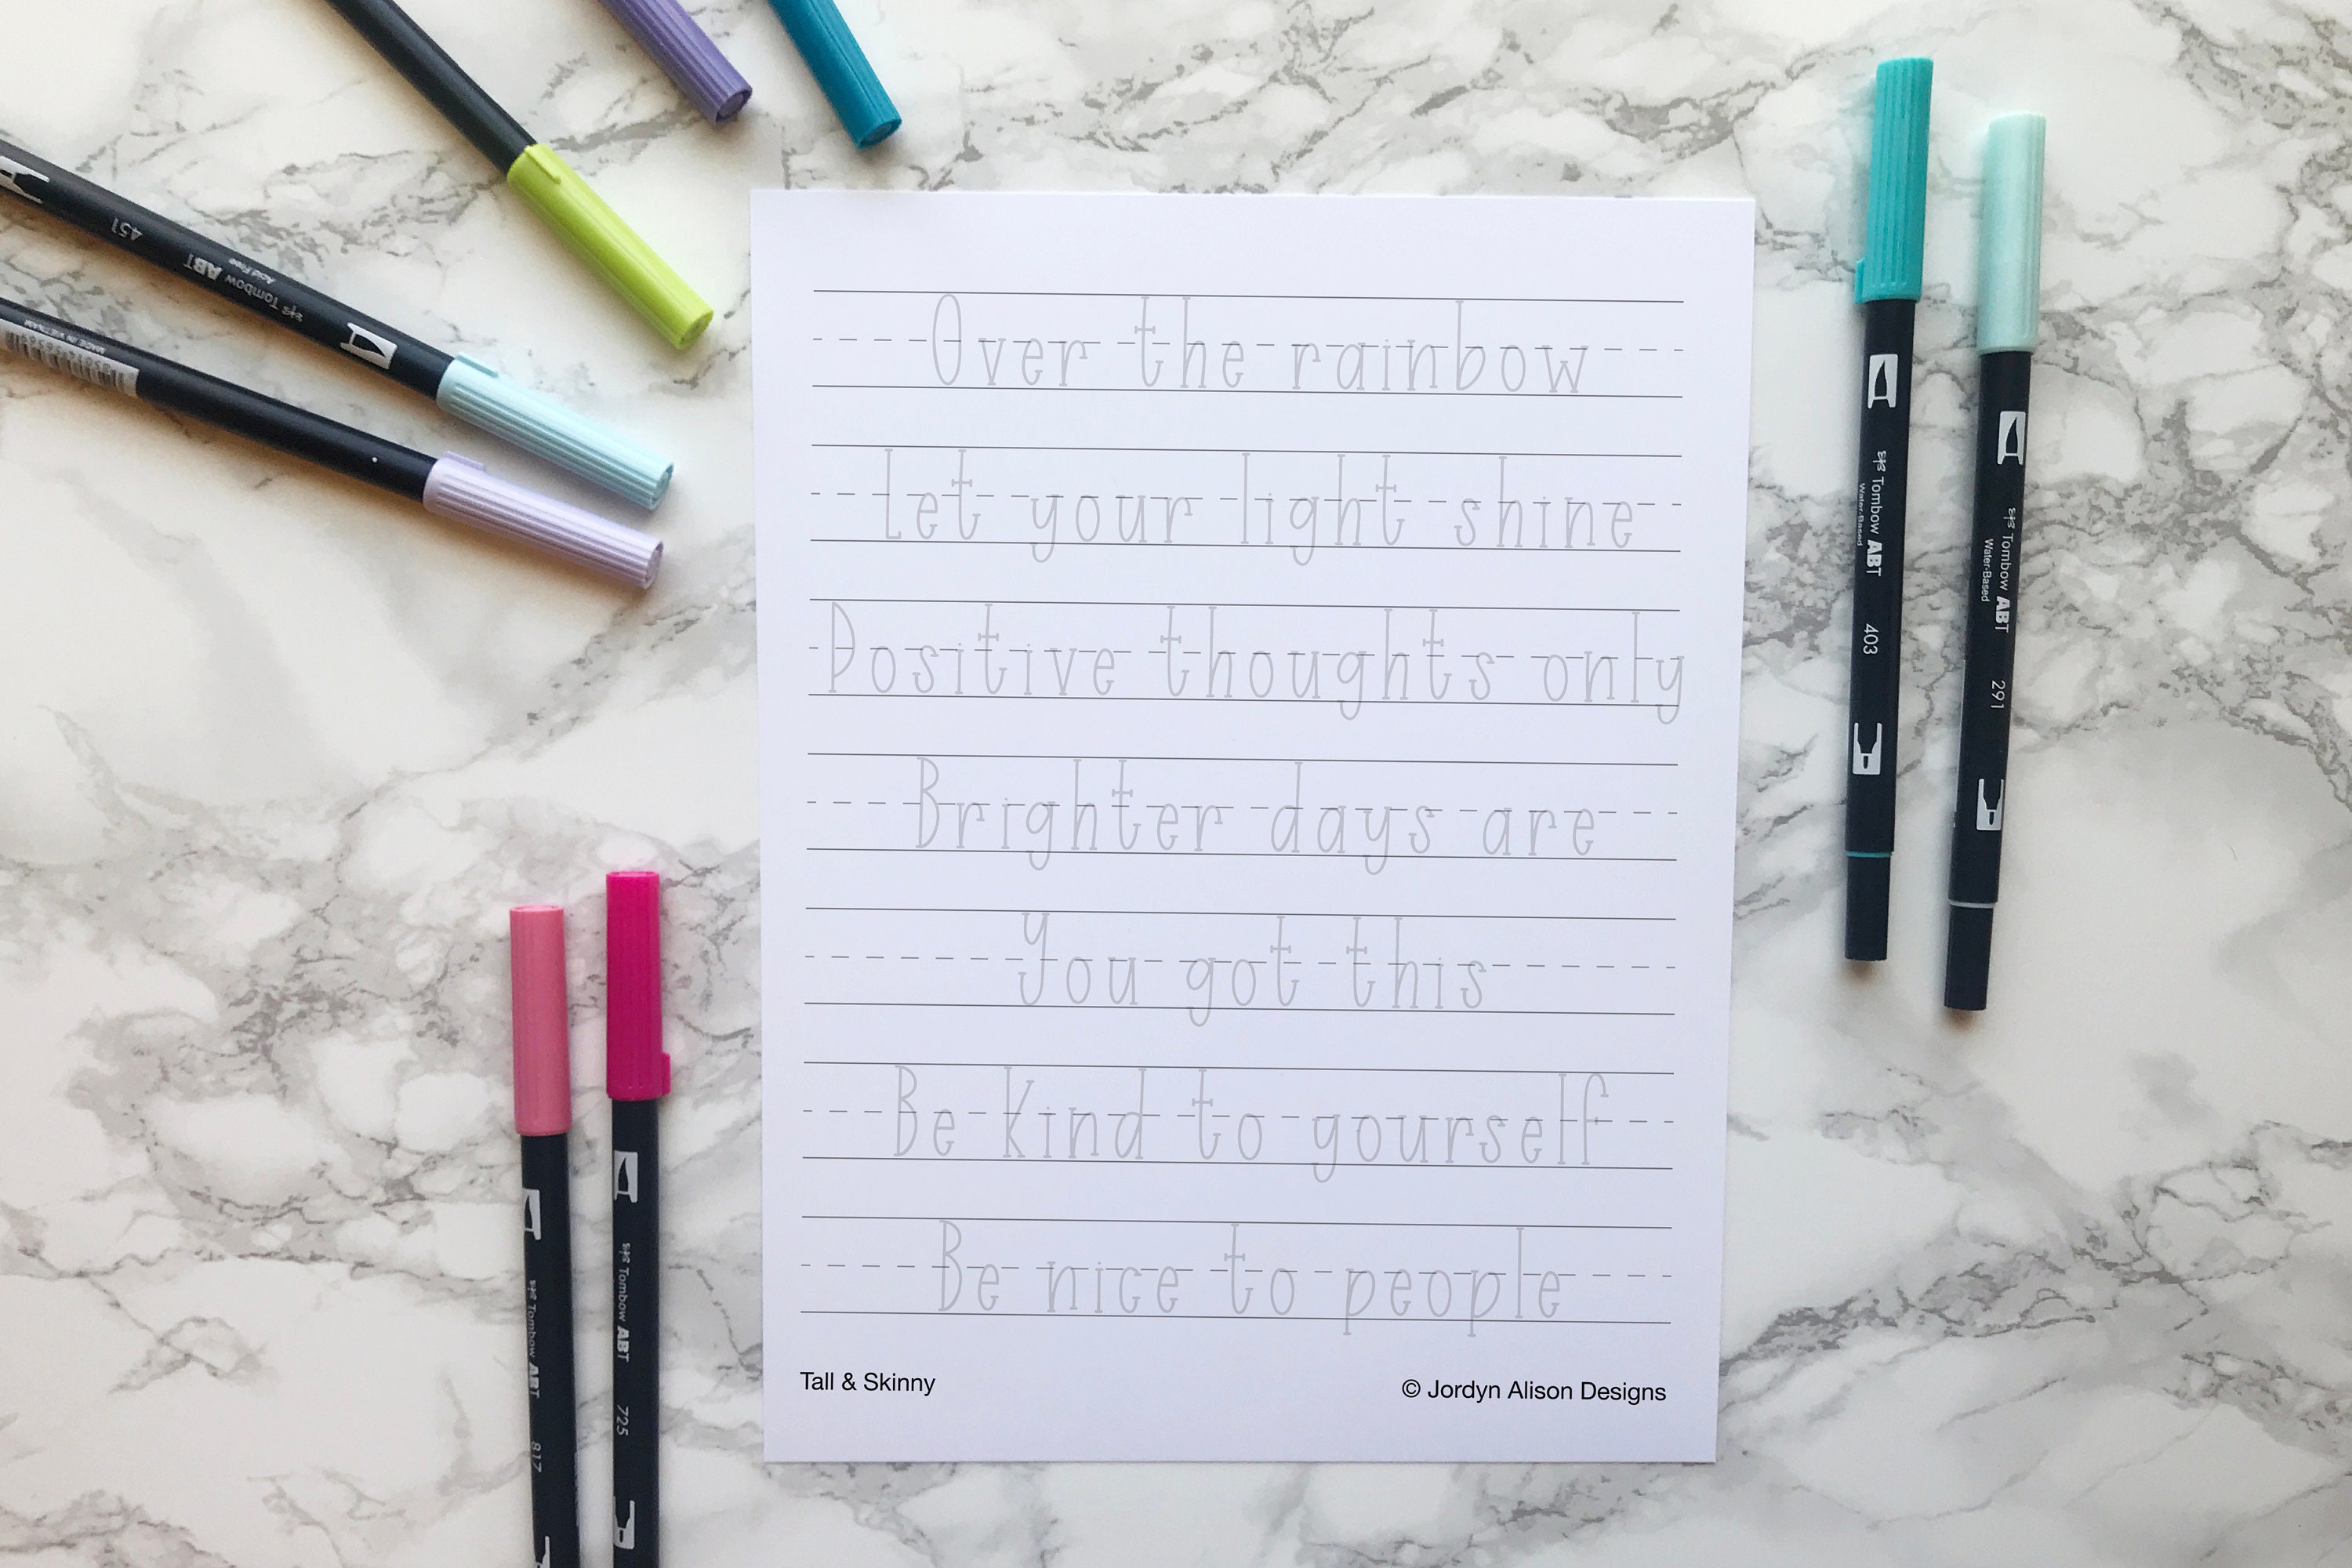 Over the rainbow
Let your light shine
Positive thoughts only
Brighter days are
You got this
Be kind to yourself
Be nice to people
Tall & Skinny
© Jordyn Alison Designs
451
ABT
Tombow
Acid Free
MADE IN VIETNAM
Tombow ABT
Water-Based
403
Tombow ABT
Water-Based
291
Tombow ABT
817
Tombow ABT
725